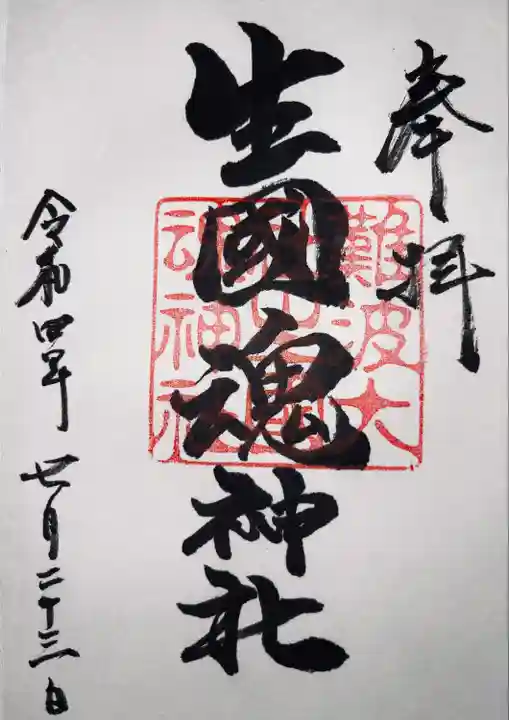 奉拝
生國魂神社
難波大
社生國
魂神社
令和四年七月二十三日